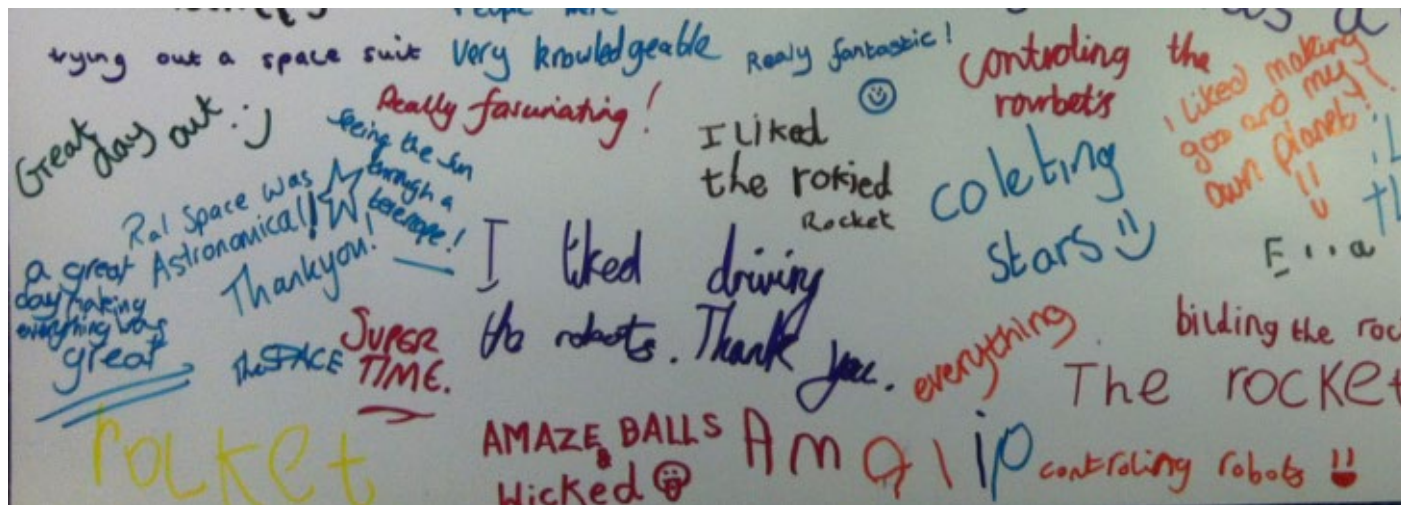 People here
trying out a space suit
very knowledgeable
Realy fantastic!
controling the
rowbets
I liked making
goo and my
own planet!
Great
day out :)
Really fascinating!
Seeing the sun
through a
telescope!
I Liked
the rokied
Rocket
coleting
stars
Ral Space was
Astronomical!
Thankyou!
a great
day making
everything was
great
I liked driving
the robots. Thank you.
E...a
The SPACE
SUPER
TIME.
everything
bilding the roc
The rocket
rocket
AMAZE BALLS
&
Wicked
controling robots